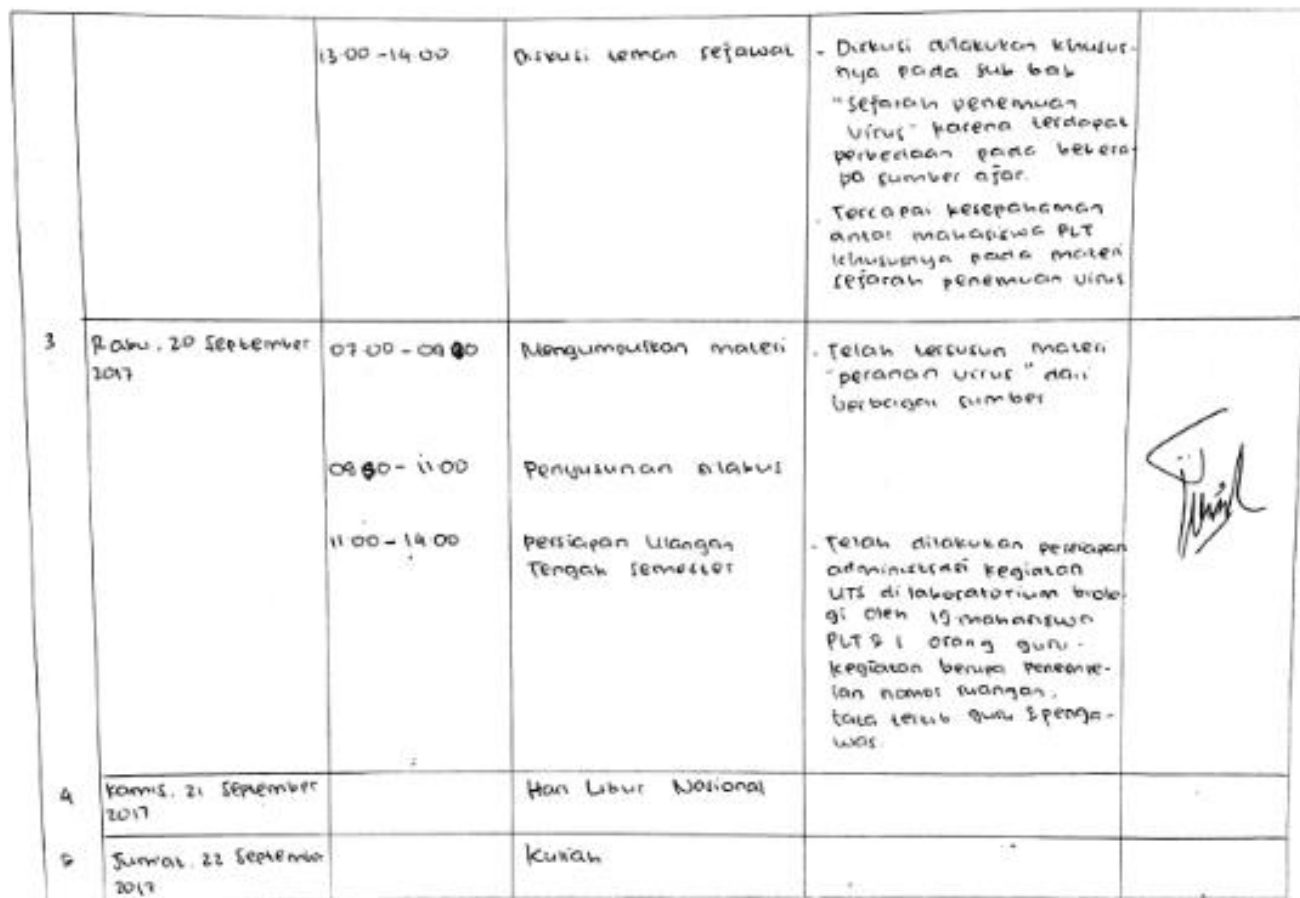 13.00 - 14.00
Diskusi teman sejawat
- Diskusi dilakukan khusus-
nya pada sub bab
"Sejarah penemuan
virus" karena terdapat
perbedaan pada bebera-
pa sumber ajar.
- Tercapai kesepahaman
antar mahasiswa PLT
khususnya pada materi
sejarah penemuan virus
3
Rabu, 20 September
2017
07.00 -
Mengumpulkan materi
- Telah tersusun materi
"peranan virus" dari
berbagai sumber
- 11.00
Penyusunan silabus
11.00 - 14.00
Persiapan Ulangan
Tengah Semester
- Telah dilakukan persiapan
administrasi kegiatan
UTS di laboratorium biolo-
gi oleh 19 mahasiswa
PLT & 1 orang guru.
kegiatan berupa
nomor ruangan,
tata tertib guru & penga-
was.
4
Kamis, 21 September
2017
Hari Libur Nasional
5
Jumat, 22 September
2017
Kuliah